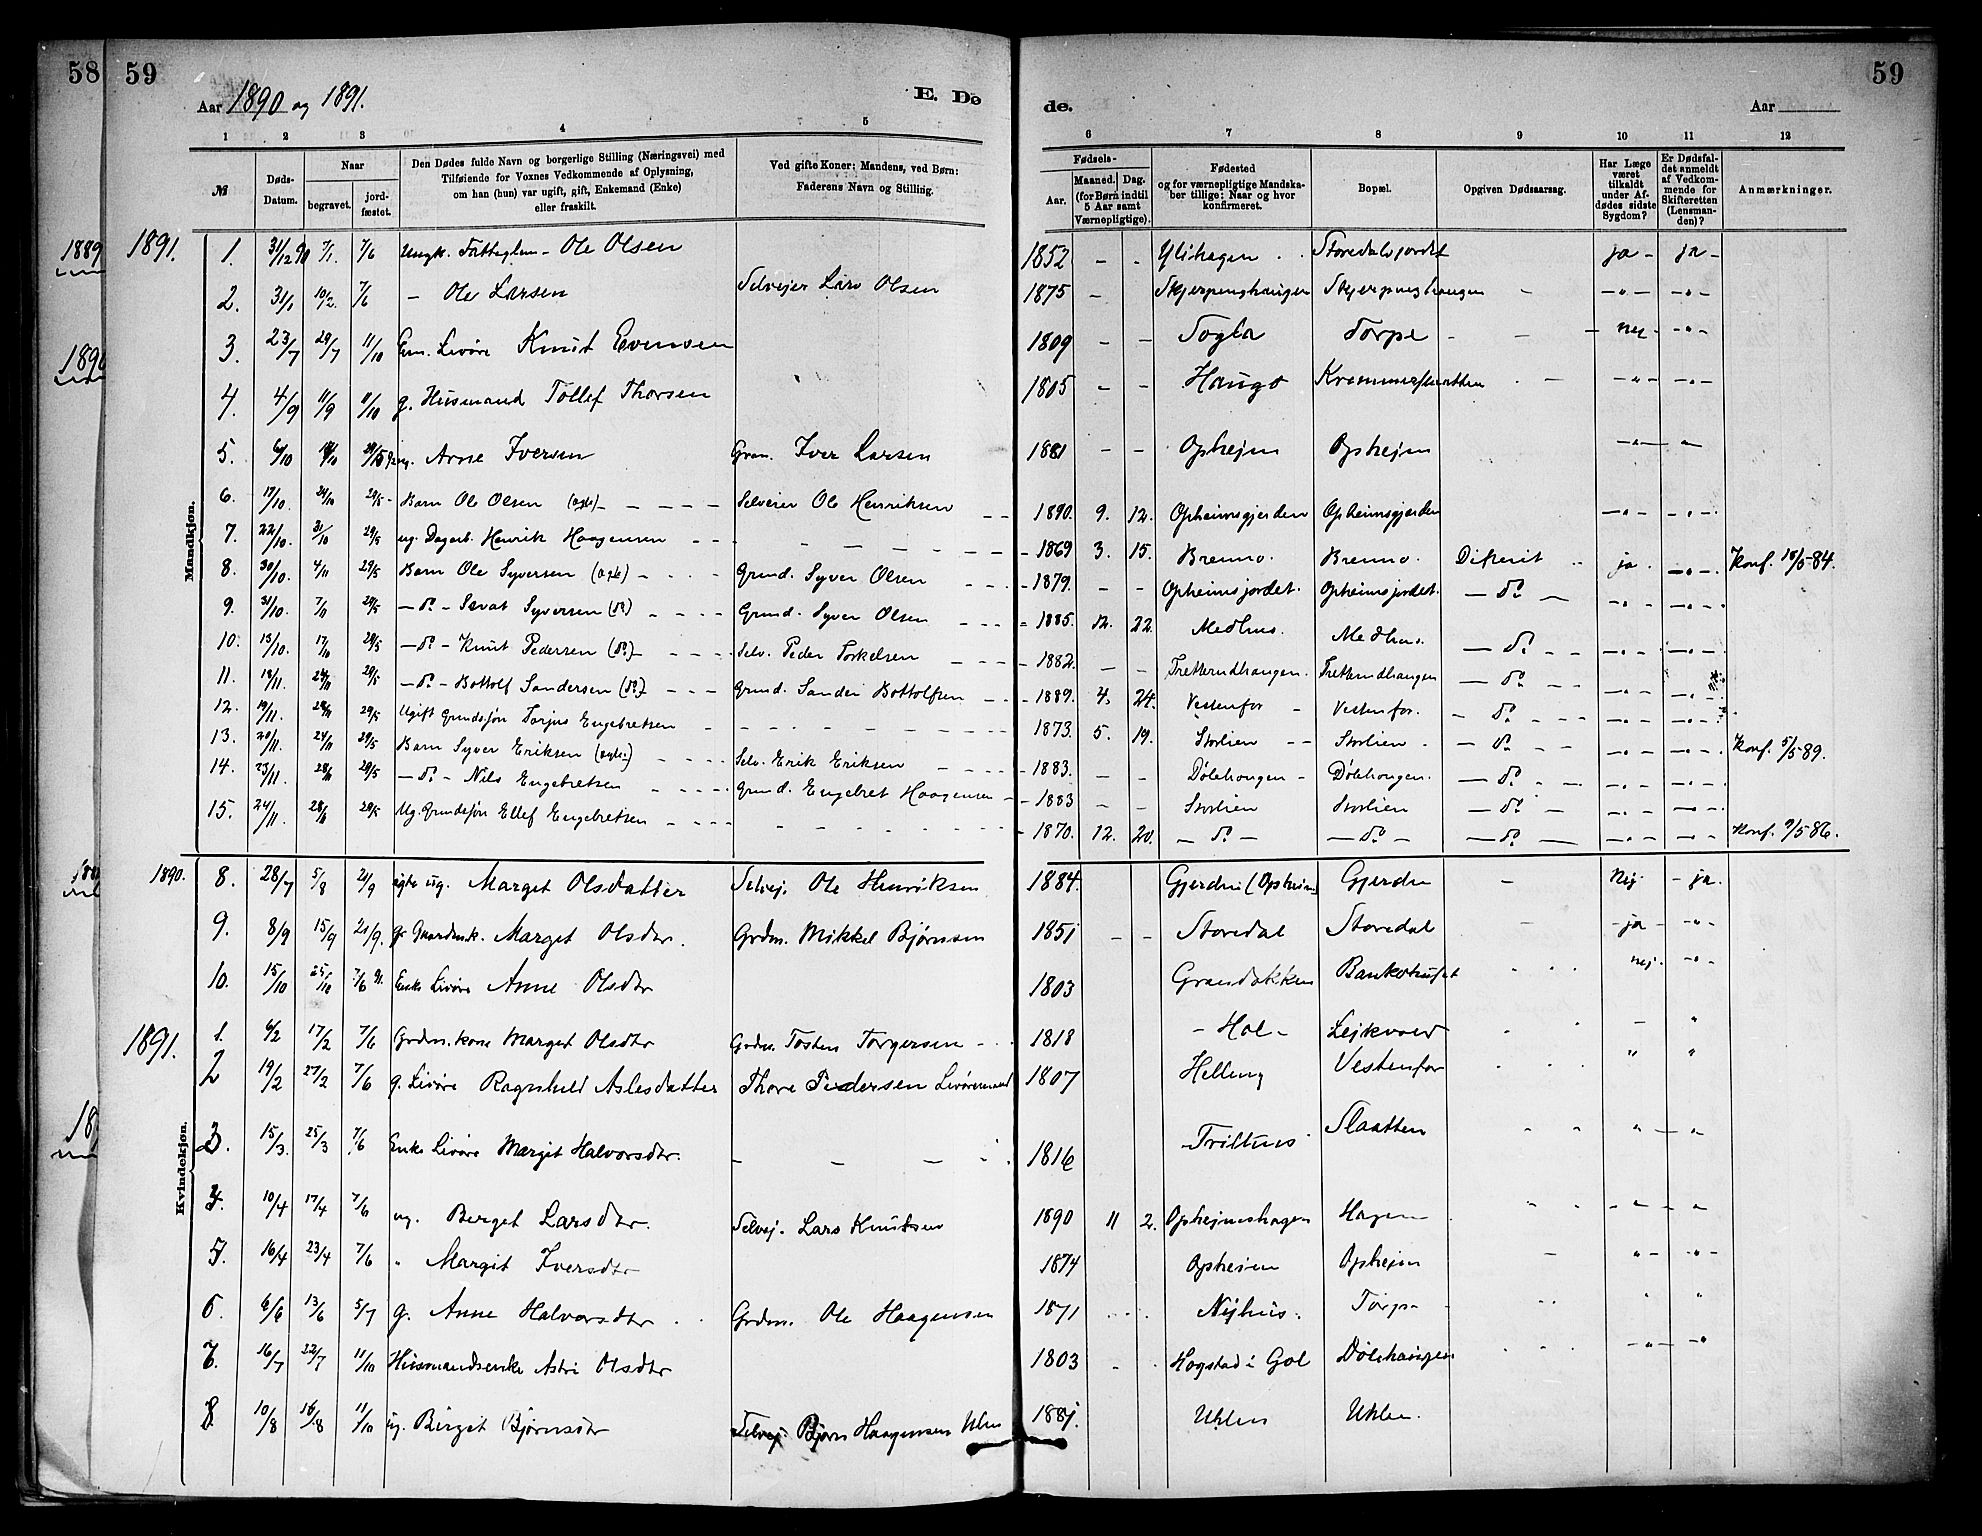 58 59
Aar 1890 og 1891.
E. Dø
de.
Aar
59
1 2 3 4 5 6 7 8 9 10 11 12
№
Døds-Datum.
Naar
begravet.
jord-fæstet.
Den Dødes fulde Navn og borgerlige Stilling (Næringsvei) med
Tilføiende for Voxnes Vedkommende af Oplysning,
om han (hun) var ugift, gift, Enkemand (Enke)
eller fraskilt.
Ved gifte Koner: Mandens, ved Børn:
Faderens Navn og Stilling.
Fødsels-
Aar.
Maaned. Dag.
(for Børn indtil
5 Aar samt
Værnepligtige).
Fødested
og for værnepligtige Mandska-
ber tillige: Naar og hvor
konfirmeret.
Bopæl.
Opgiven Dødsaarsag.
Har Læge
været
tilkaldt
under Af-
dødes sidste
Sygdom?
Er Dødsfal-
det anmeldt
af Vedkom-
mende for
Skifteretten
(Lensman-
den)?
Anmærkninger.
1889
1890
Mandkjøn.
1891. 1. 31/12 90 7/1. 7/6 Ungk. Ole Olsen 1852 - - Ylihagen Storedalsjordet ja - ja -
2. 31/1 10/2. 7/6 - Ole Larsen Selvejer Lars Olsen 1875 - Skjerpinghaugen Skjerpinghaugen - -"- -"-
3. 23/7 29/7 11/10 Em. Livøre Knut Evensen 1809 - - Sogla Torpe - - nej - -"-
4. 4/9 11/9 11/10 g. Husmand Tollef Thorsen 1805 - - Haugo - -"- -"-
5. 6/10 29/5 ug. Arne Iversen Grm. Iver Larsen 1881 - - Ophejm Ophejm -"- -"-
6. 17/10. 24/10 29/5 Barn Ole Olsen (ægte) Selveier Ole Henriksen 1890. 9. 12. Opheimsgjerden Opheimsgjerden -"- -"-
7. 22/10. 31/10 29/5 ug. Dagarb. Henrik Haagensen - - - 1869 3. 15. Brenno. Brenno. Difterit ja. -"- Konf. 18/5-84.
8. 30/10. 4/11 29/5 Barn Ole Syversen (ægte) Grund. Syver Olsen 1879. - - Opheimsjordet. Opheimsjordet. - do - -"- -"-
9. 31/10. 7/11 29/5 - do - Sevat Syversen (do) Grund. Syver Olsen 1885. 12. 22. Medhus. Medhus. - do - -"- -"-
10. 13/10. 17/10 29/5 - do - Knut Pedersen (do) Selv. Peder Torkelsen 1882. - - Tretterudhaugen. Tretterudhaugen - do - -"- -"-
11. 18/11. 24/11 29/5 - do - Bottolf Sandersen (do) Grund. Sander Bottolfsen 1889. 4. 24. Vestenfor - Vestenfor. - do - -"- -"-
12. 19/11. 29/5 Ugift Grundsøn Torjus Engebretsen - - - 1873. 5. 19. Storlien - - Storlien. - do - -"- -"- Konf. 5/5-89.
13. 20/11. 24/11 29/5 Barn Syver Eriksen (ægte.) Selv. Erik Eriksen 1883. - - Dølehougen - Dølehougen. - do - -"- -"-
14. 23/11. 28/11 29/5 - do - Nils Engebretsen Grund. Engebret Haagensen 1883 - - Storlien Storlien - do - -"- -"-
15. 24/11. 28/11 29/5 Ug. Grundesøn Ellef Engebretsen - - - 1870. 12. 20. - do - - do - - do - -"- -"- Konf. 9/5 86.
Kvindekjøn.
1890. 8. 28/7 5/8 21/9 ægte ug. Marget Olsdatter Selvej. Ole Henriksen 1884. Gjerdn (Ophejm) Gjerdn - Nej. - ja.
9. 8/9 15/9 21/9. g. Gaardmk. Marget Olsdtr. Grdm. Mikkel Bjørnsen 1851 - - Storedal Storedal - - ja - -"-
10. 15/10 25/10 7/6 91. Enke Livøre Anne Olsdtr 1803 Grandokken Bankohuset nej. -"-
1891. 1. 6/2 17/2 7/6 Grdm. kone Marget Olsdtr Grdm. Tosten Torgersen 1818 - Hol - Lejkvold - "
2 19/2 27/2 7/6 g. Livøre Ragnhild Aslesdatter Thore Pedersen Livøremand 1807 Helling Vestenfor " "
3. 15/3. 25/3 7/6 Enke Livøre Margit Halvorsdtr. - - - 1816 Trilhus Slaatten " " - " -
4. 10/4 17/4 7/6 ug. Berget Larsdtr. Selvej. Lars Knutsen 1890 11 2. Ophejmshagen Hagen " - " - " -
5. 16/4 23/4 7/6 " Margit Iversdtr 1874 Ophejm Ophejm - " - -"-
6. 6/6 13/6 5/7 g. Anne Halvorsdtr Grdm. Ole Haagensen 1871 Nyhus. Torpe - " "
7. 16/7 22/7 11/10 Husmandsenke Astri Olsdtr 1803 Hogstad i Gol Dølehaugen - " - -"-
8 10/8 16/8 11/10 ug. Birget Bjørnsdtr Selvej. Bjørn Haagensen Uhln 1881. Uhlen Uhlen.